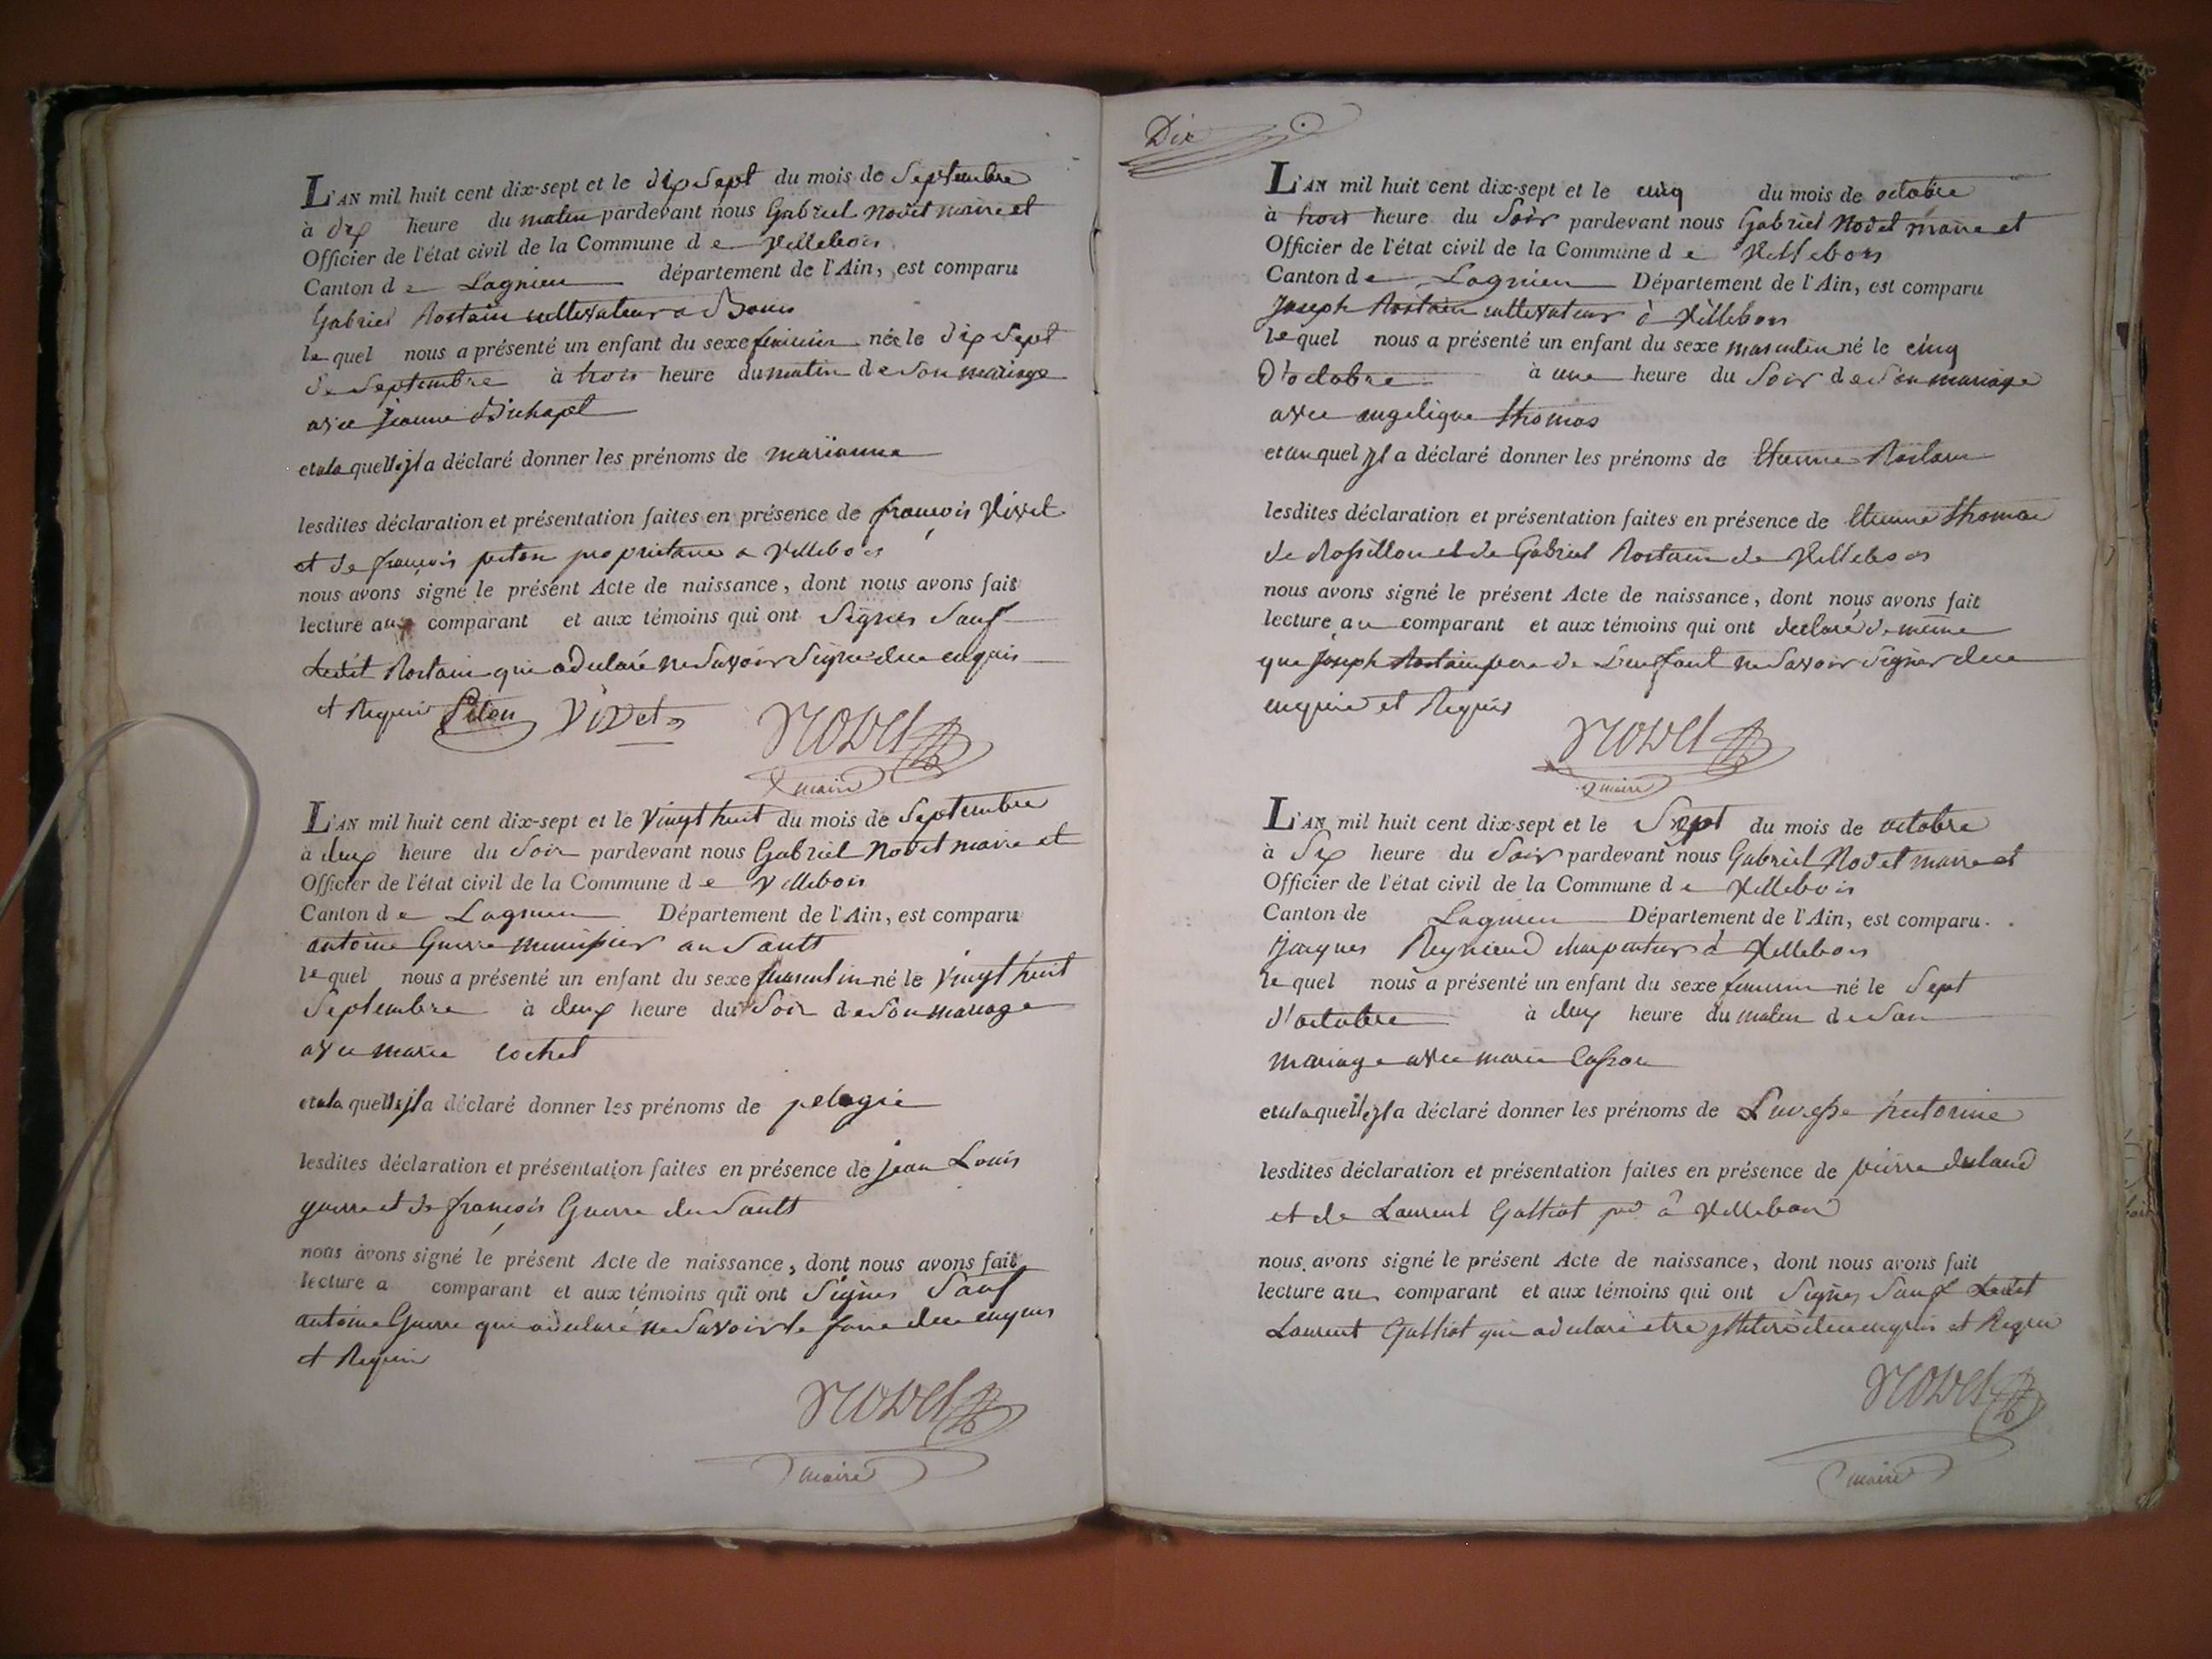 L'AN mil huit cent dix-sept et le dix Sept du mois de Septembre
à dix heure du matin pardevant nous Gabriel Novet maire et
Officier de l'état civil de la Commune d e Villebois
Canton d e Lagnieu département de l'Ain, est comparu
Gabriel Rostain cultivateur a Bouis
le quel nous a présenté un enfant du sexe feminin née le dix Sept
de Septembre à trois heure du matin de Son mariage
avec jeanne
et a la quelle il a déclaré donner les prénoms de marianne
lesdites déclaration et présentation faites en présence de françois Vivet
et de françois piton proprietaires a Villebois
nous avons signé le présent Acte de naissance, dont nous avons fait
lecture au comparant et aux témoins qui ont Signés Sauf
Ledit Rostain qui a declaré ne Savoir Signer de ce enquis
et Requis Piton Vivet Novet
maire
L'AN mil huit cent dix-sept et le Vingt huit du mois de Septembre
à deux heure du Soir pardevant nous Gabriel Novet maire et
Officier de l'état civil de la Commune d e Villebois
Canton d e Lagnieu Département de l'Ain, est comparu
antoine Guerre menuisier au Sault
le quel nous a présenté un enfant du sexe masculin né le Vingt huit
Septembre à deux heure du Soir de Son mariage
avec marie cochet
et a la quelle il a déclaré donner les prénoms de pelagie
lesdites déclaration et présentation faites en présence de jean Louis
guerre et de françois Guerre du Sault
nous avons signé le présent Acte de naissance, dont nous avons fait
lecture a comparant et aux témoins qui ont Signés Sauf
antoine Guerre qui a declaré ne Savoir le faire de ce enquis
et Requis
Novet
maire
Dix
L'AN mil huit cent dix-sept et le cinq du mois de octobre
à trois heure du Soir pardevant nous Gabriel Novet maire et
Officier de l'état civil de la Commune d e Villebois
Canton d e Lagnieu Département de l'Ain, est comparu
Joseph Rostain cultivateur à Villebois
le quel nous a présenté un enfant du sexe masculin né le cinq
D'octobre à une heure du Soir de Son mariage
avec angelique thomas
et au quel il a déclaré donner les prénoms de Etienne Rostain
lesdites déclaration et présentation faites en présence de Etienne thomas
de Rossillon et de Gabriel Rostain de Villebois
nous avons signé le présent Acte de naissance, dont nous avons fait
lecture au comparant et aux témoins qui ont declaré de même
que Joseph Rostain pere de L'enfant ne Savoir Signer de ce
enquis et Requis
Novet
maire
L'AN mil huit cent dix-sept et le Sept du mois de octobre
à Six heure du Soir pardevant nous Gabriel Novet maire et
Officier de l'état civil de la Commune d e Villebois
Canton de Lagnieu Département de l'Ain, est comparu
Jacques Reynaud charpentier à Villebois
le quel nous a présenté un enfant du sexe feminin né le Sept
d'octobre à deux heure du matin de Son
mariage avec marie
et a la quelle il a déclaré donner les prénoms de
lesdites déclaration et présentation faites en présence de pierre
et de Laurent à Villebois
nous avons signé le présent Acte de naissance, dont nous avons fait
lecture au comparant et aux témoins qui ont Signés Sauf Ledit
Laurent qui a declaré etre de ce enquis et Requis
Novet
maire